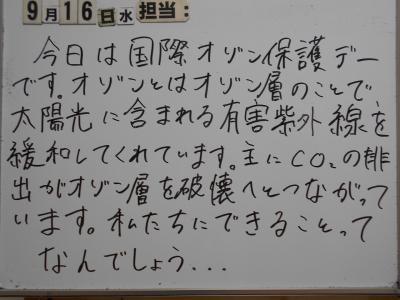 9月16日水担当:
今日は国際オゾン保護デー
です。オゾンとはオゾン層のことで
太陽光に含まれる有害紫外線を
緩和してくれています。主にCO₂の排
出がオゾン層を破懐へとつながって
います。私たちにできることって
なんでしょう...